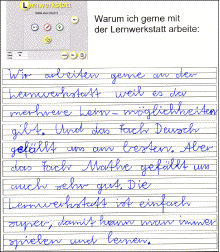 Lernwerkstatt
Warum ich gerne mit
der Lernwerkstatt arbeite:
Wir arbeiten gerne an der
Lernwerkstatt weil es da
mehrere Lern-möglichkeiten
gibt. Und das Fach Deusch
gefällt uns am besten. Aber
das Fach Mathe gefällt uns
auch sehr gut. Die
Lernwerkstatt ist einfach
super, damit kann man immer
spielen und lernen.